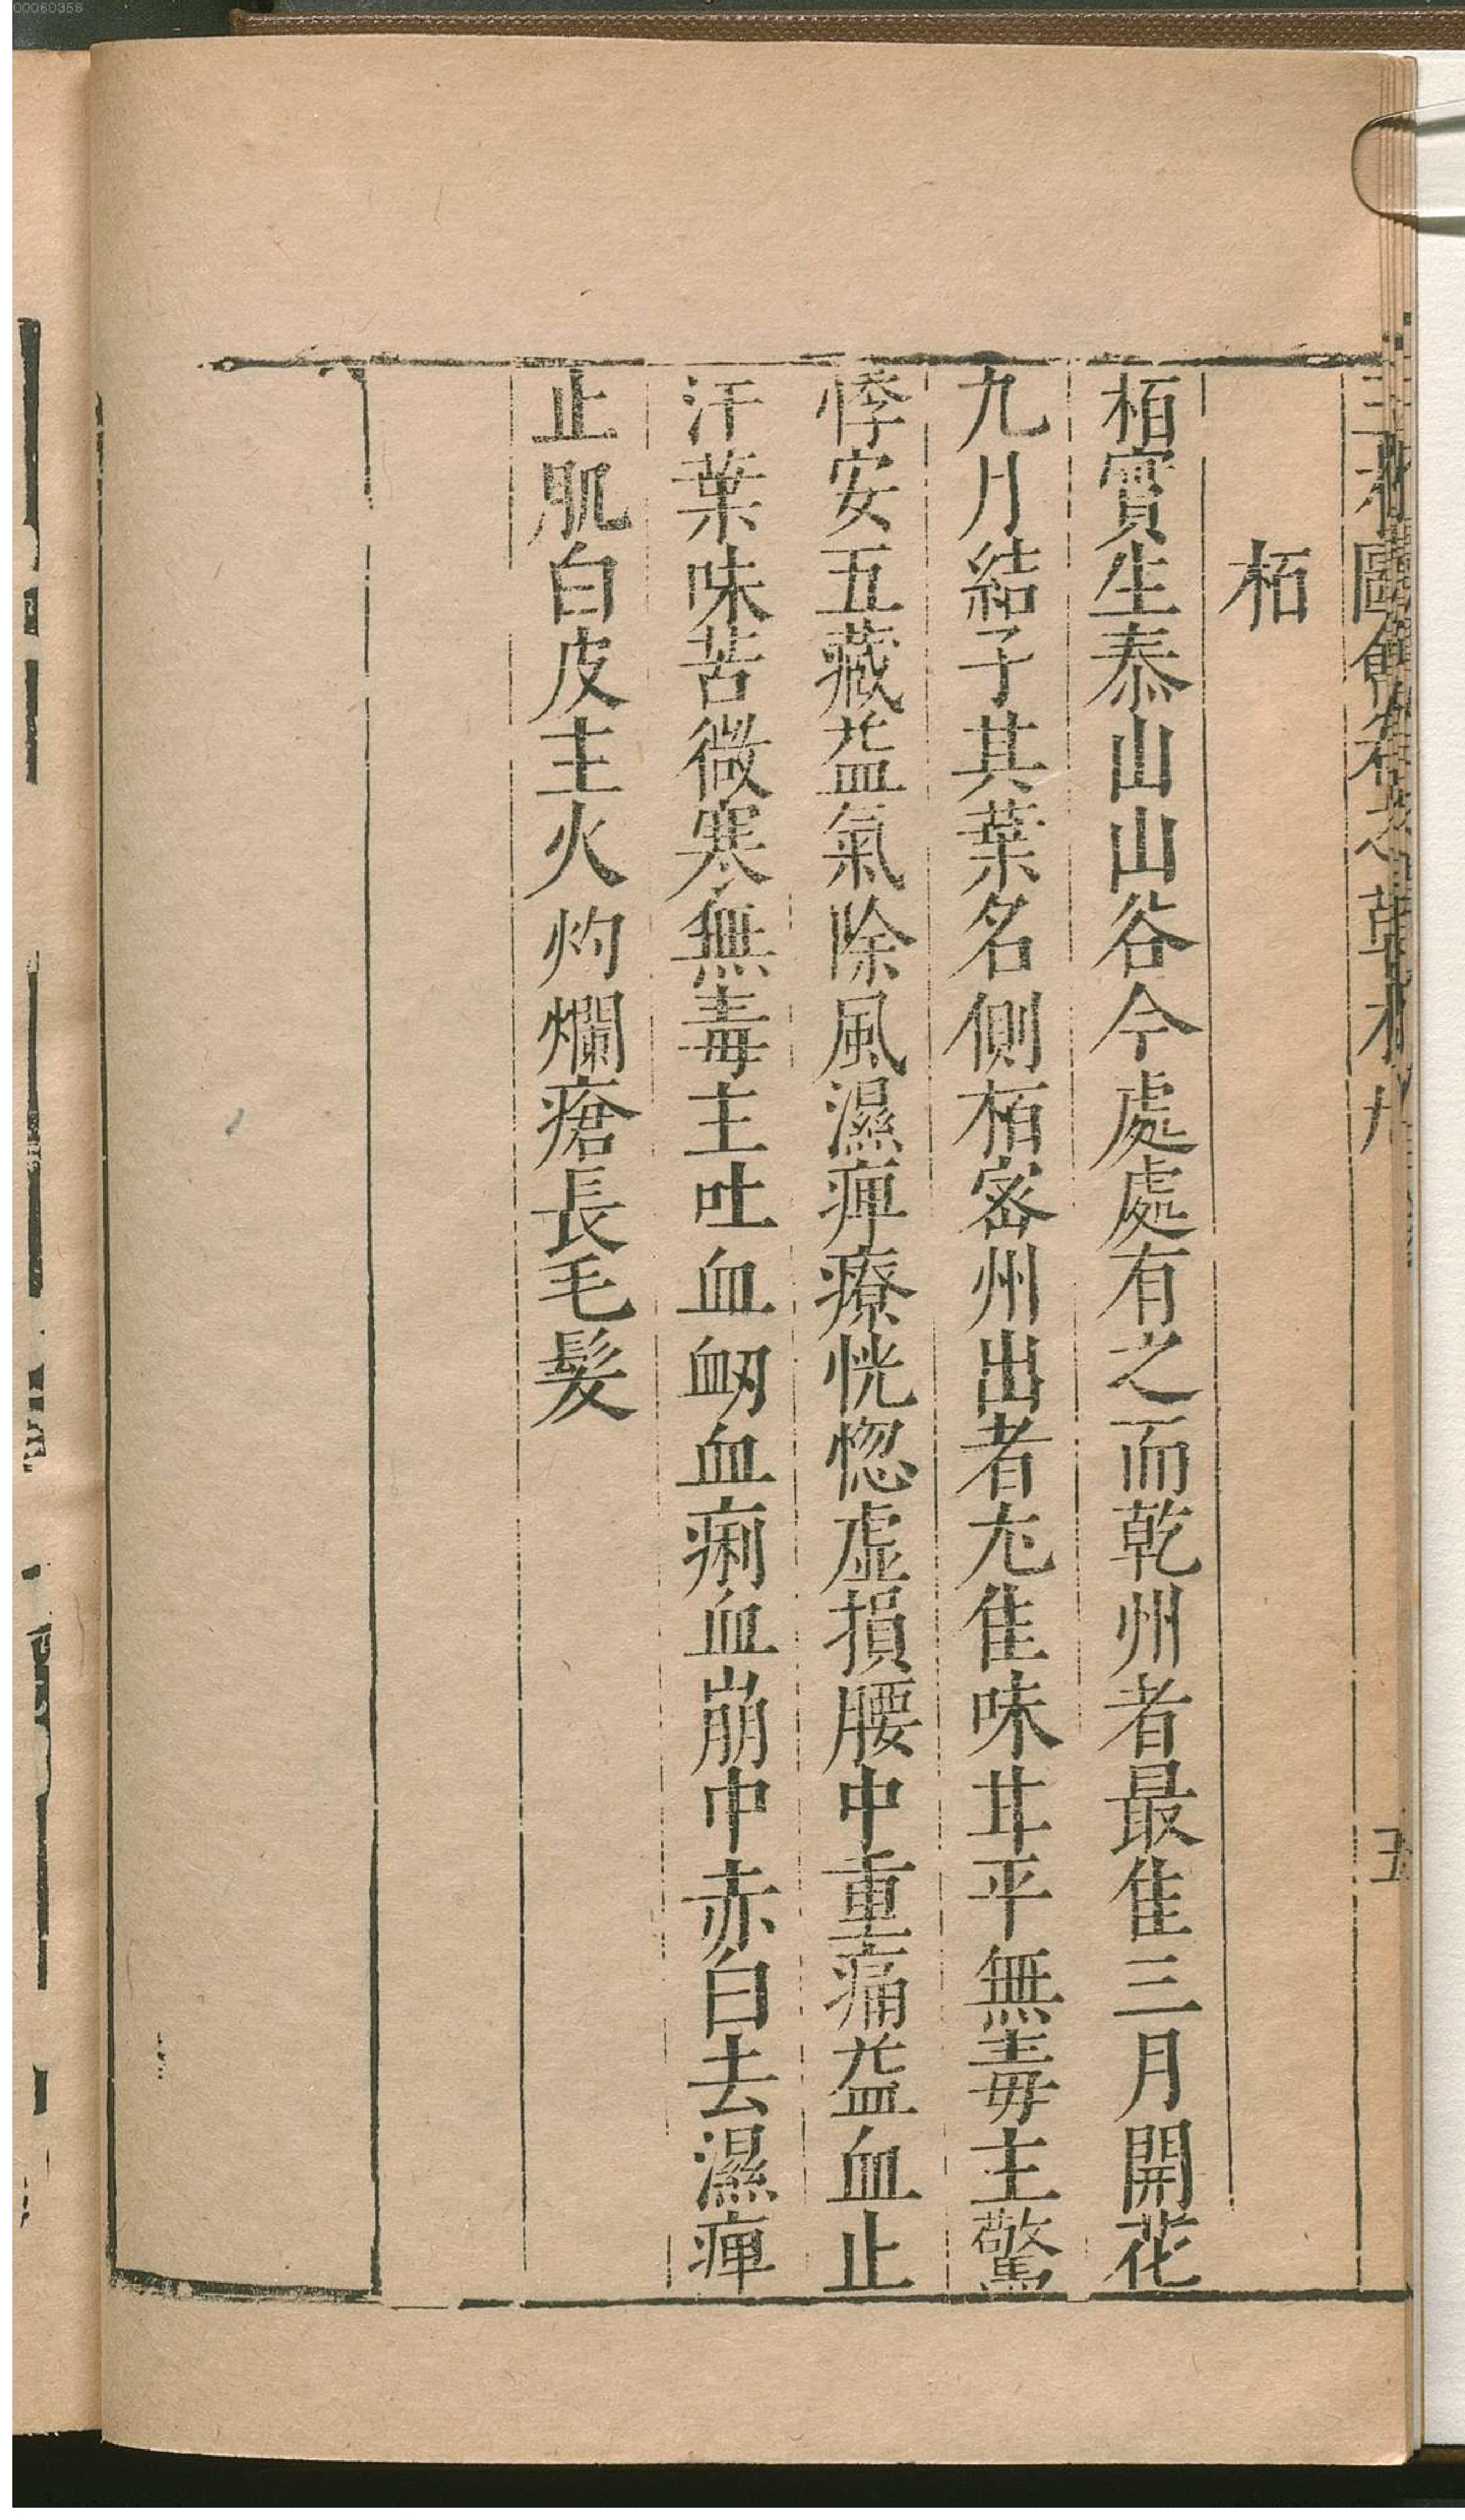 栢
栢實生泰山山谷今處處有之而乾州者最隹三月開花
九月結子其葉名側栢宻州出者尢隹味甘平無毒主驚
悸安五藏益氣除風濕痺療恍惚虛損腰中重痛益血止
汗葉味苦微寒無毒主吐血衂血痢血崩中赤白去濕痺
止肌白皮主火灼爛瘡長毛髮
五
00060358